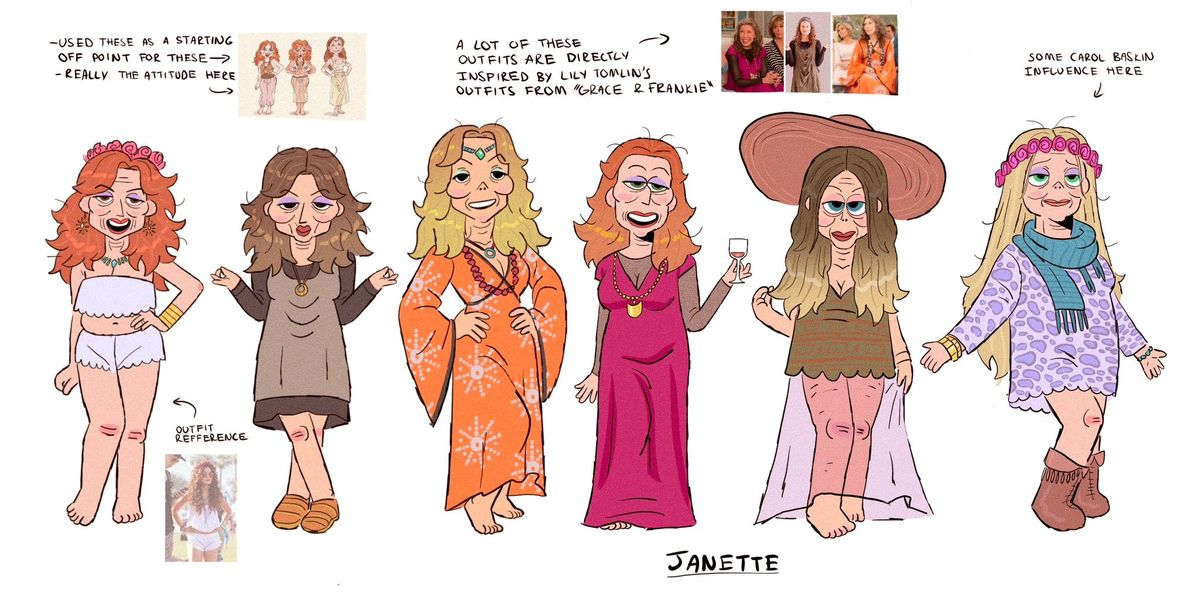 -USED THESE AS A STARTING
OFF POINT FOR THESE
-REALLY THE ATTITUDE HERE
A LOT OF THESE
OUTFITS ARE DIRECTLY
INSPIRED BY LILY TOMLIN'S
OUTFITS FROM "GRACE & FRANKIE"
SOME CAROL BASKIN
INFLUENCE HERE
OUTFIT
REFFERENCE
JANETTE